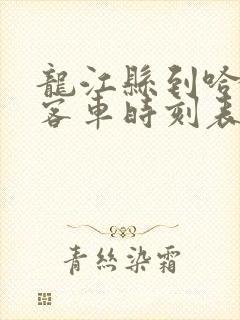 龍江縣到哈
客車時刻表
青絲染霜